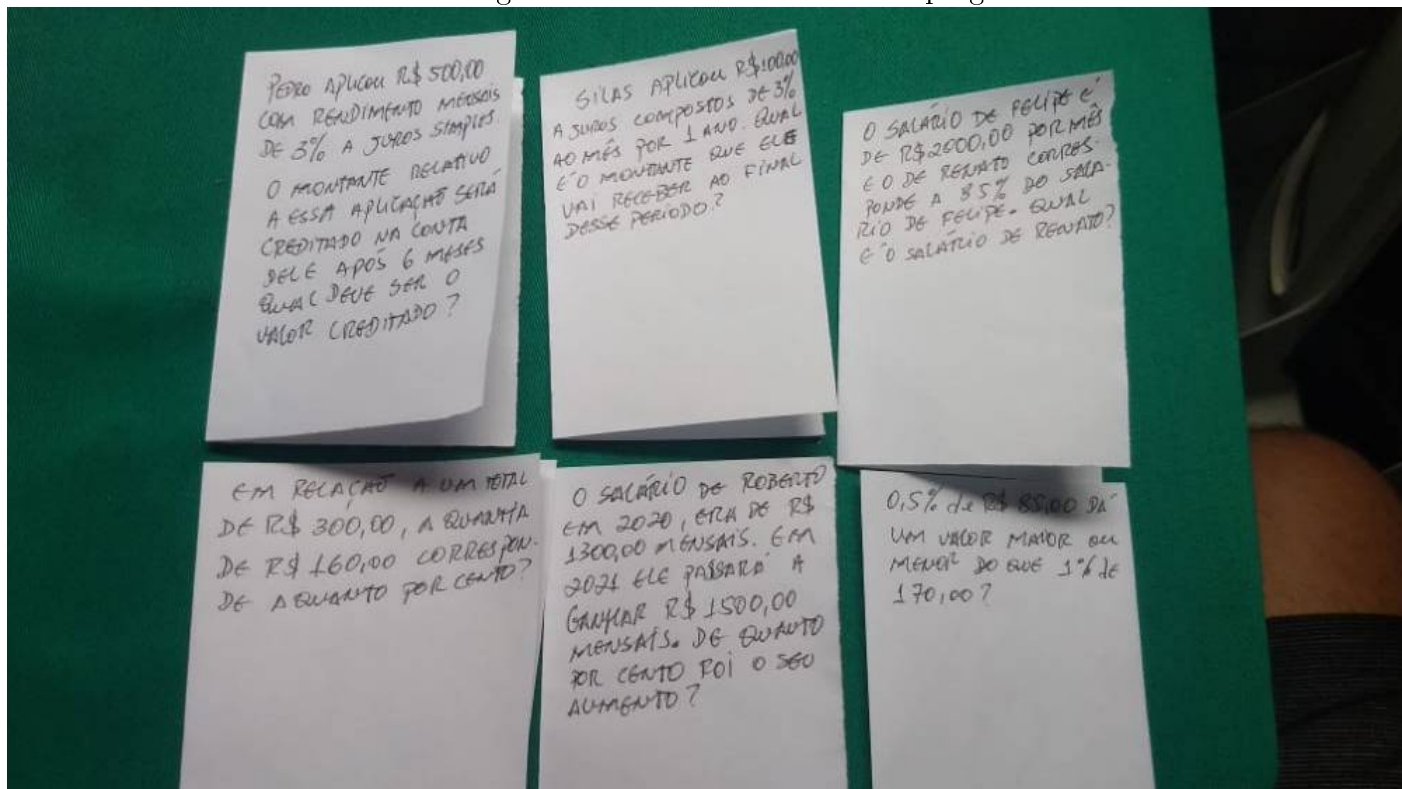 PEDRO APLICOU R$ 500,00
COM RENDIMENTO MENSAIS
DE 3% A JUROS SIMPLES.
O MONTANTE RELATIVO
A ESSA APLICAÇÃO SERÁ
CREDITADO NA CONTA
DELE APÓS 6 MESES
QUAL DEVE SER O
VALOR CREDITADO?
SILAS APLICOU R$100,00
A JUROS COMPOSTOS DE 3%
AO MÊS POR 1 ANO. QUAL
É O MONTANTE QUE ELE
VAI RECEBER AO FINAL
DESSE PERÍODO?
O SALÁRIO DE FELIPE É
DE R$2000,00 POR MÊS
E O DE RENATO CORRES-
PONDE A 85% DO SALÁ-
RIO DE FELIPE. QUAL
É O SALÁRIO DE RENATO?
EM RELAÇÃO A UM TOTAL
DE R$ 300,00, A QUANTIA
DE R$ 160,00 CORRESPON-
DE A QUANTO POR CENTO?
O SALÁRIO DE ROBERTO
EM 2020, ERA DE R$
1300,00 MENSAIS. EM
2021 ELE PASSARÁ A
GANHAR R$ 1500,00
MENSAIS. DE QUANTO
POR CENTO FOI O SEU
AUMENTO?
0,5% de R$ 85,00 DÁ
UM VALOR MAIOR OU
MENOR DO QUE 1% de
170,00?